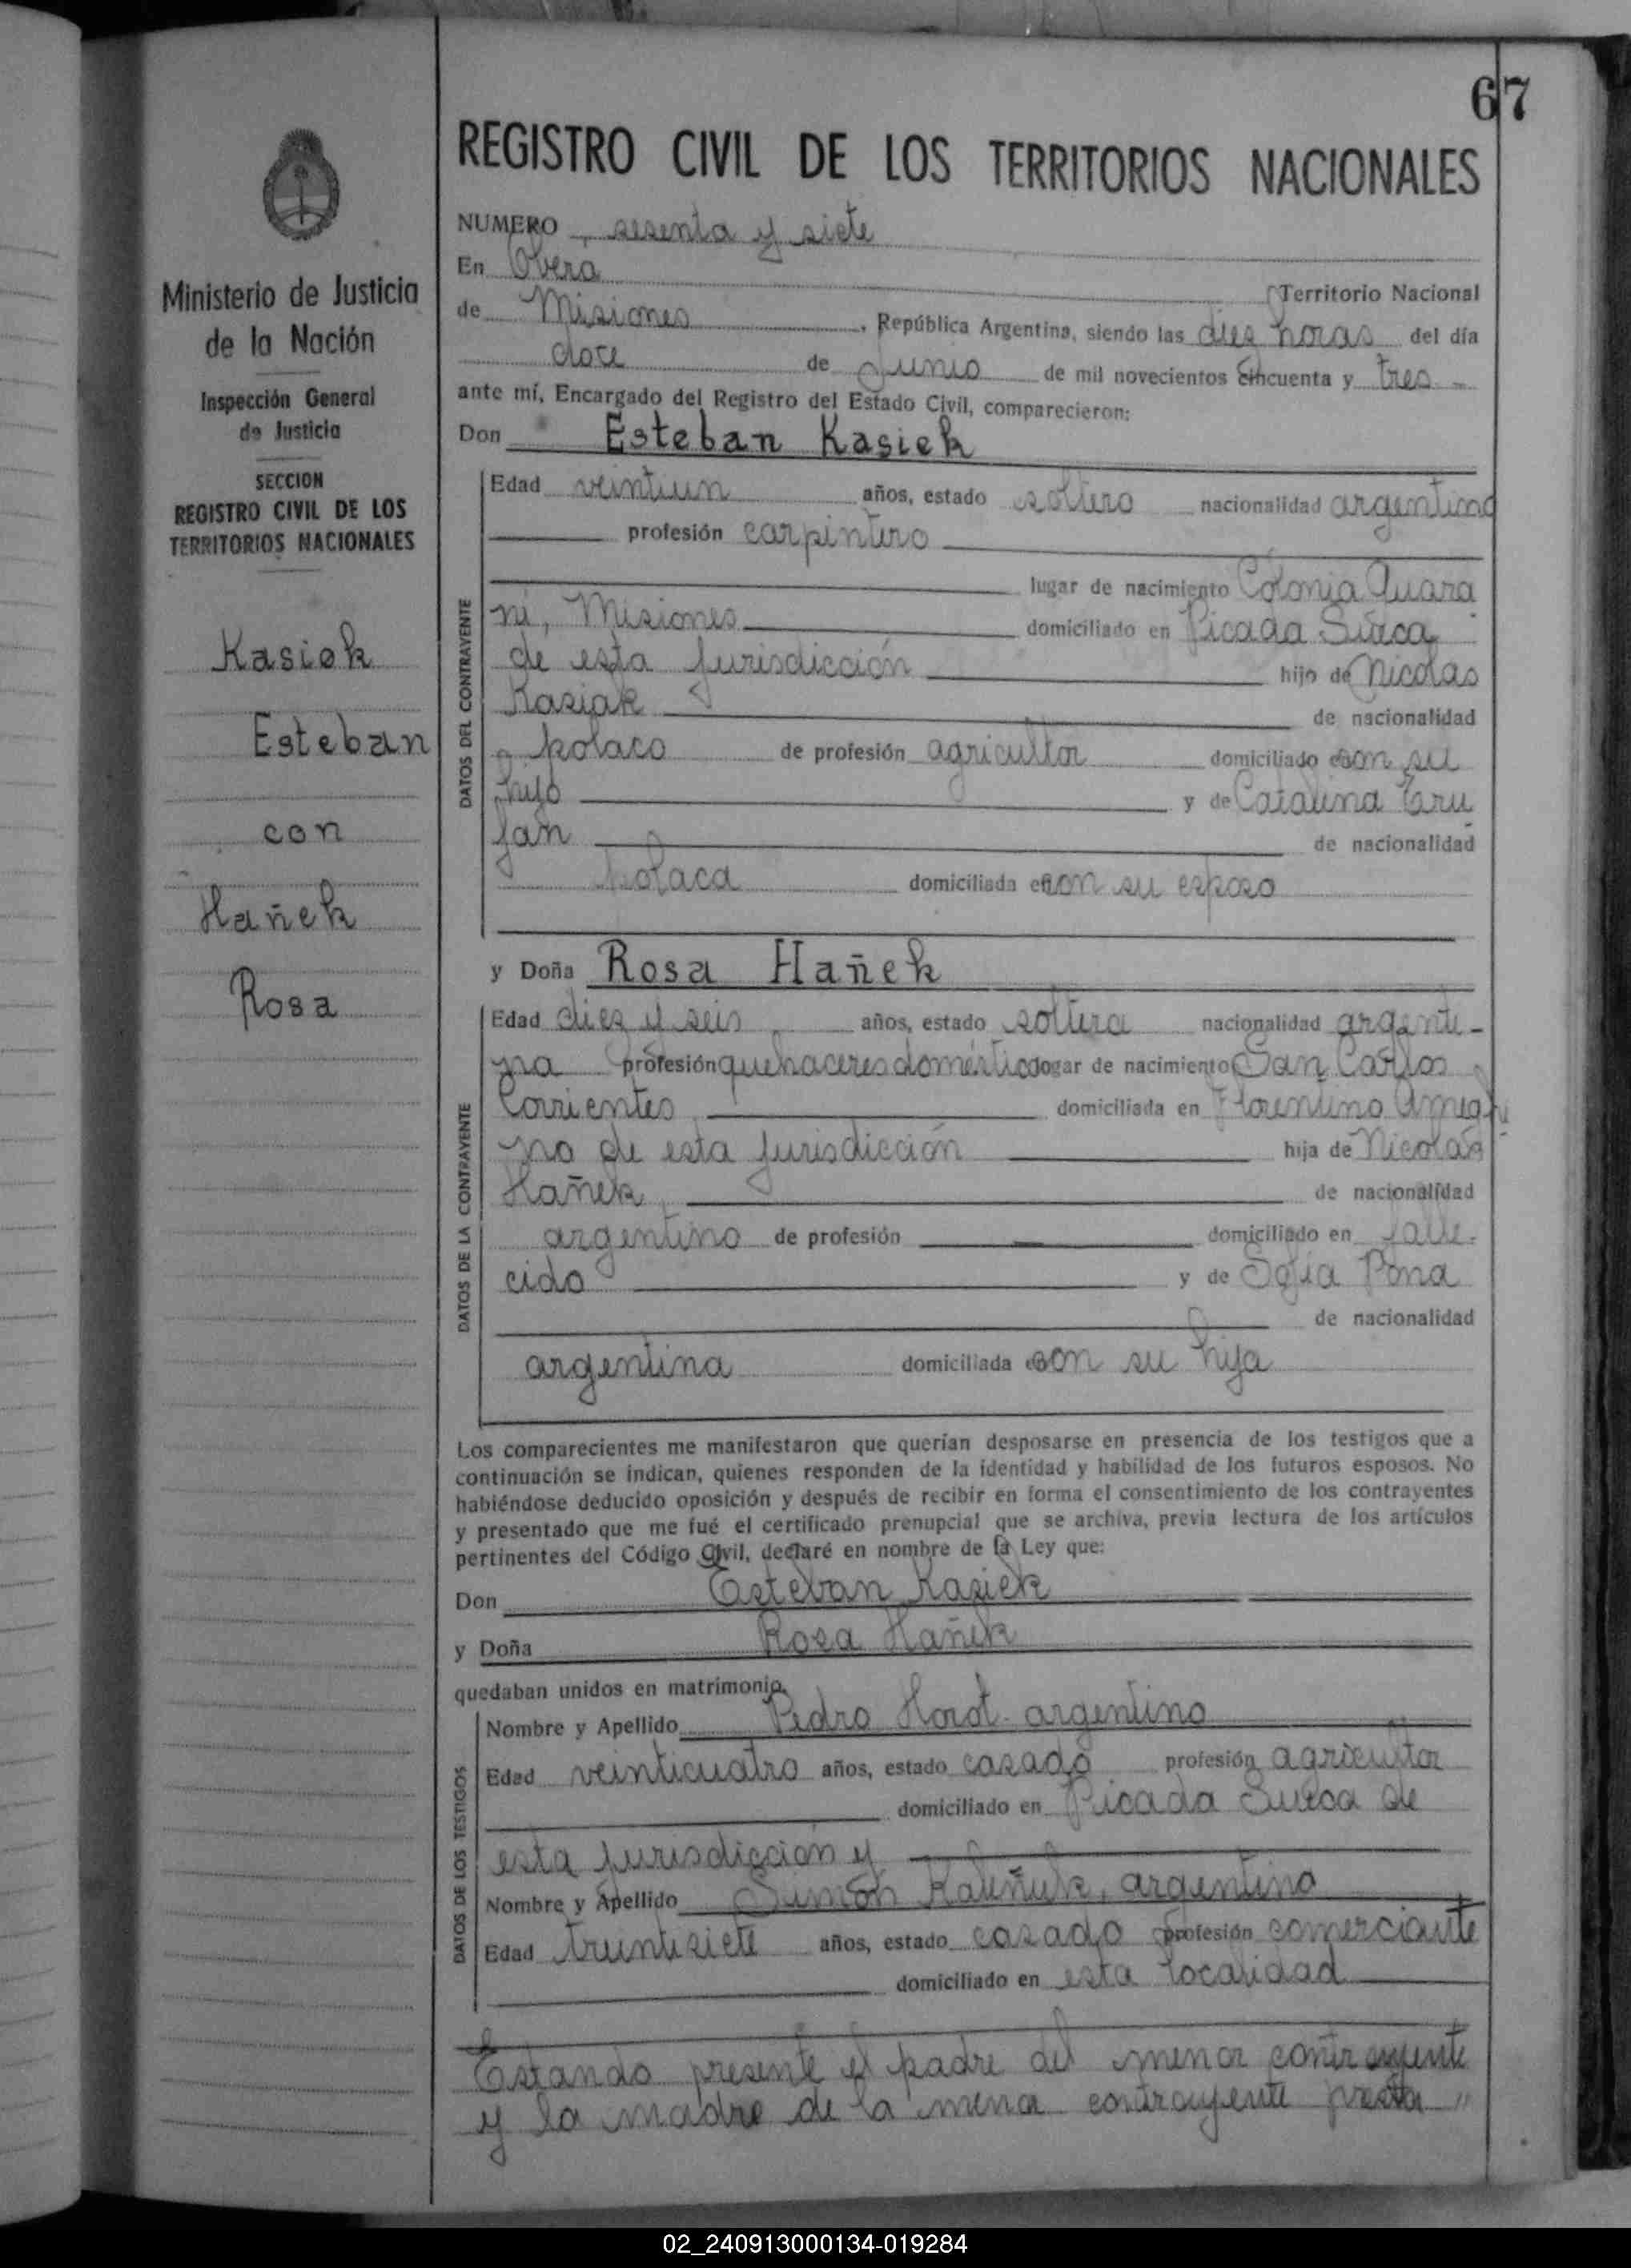 67
REGISTRO CIVIL DE LOS TERRITORIOS NACIONALES
Ministerio de Justicia
de la Nación
Inspección General
de Justicia
SECCION
REGISTRO CIVIL DE LOS
TERRITORIOS NACIONALES
Kasiek
Esteban
con
Hañek
Rosa
NUMERO sesenta y siete
En Oberá Territorio Nacional
de Misiones, República Argentina, siendo las diez horas del día
doce de Junio de mil novecientos cincuenta y tres
ante mí, Encargado del Registro del Estado Civil, comparecieron:
Don Esteban Kasiek
DATOS DEL CONTRAYENTE
Edad veintiun años, estado soltero nacionalidad argentino
profesión carpintero
lugar de nacimiento Colonia Guara
ni, Misiones domiciliado en Picada Sueca
de esta jurisdicción hijo de Nicolas
Kasiak de nacionalidad
polaco de profesión agricultor domiciliado con su
hijo y de Catalina Tru
fan de nacionalidad
polaca domiciliada con su esposo
y Doña Rosa Hañek
DATOS DE LA CONTRAYENTE
Edad diez y seis años, estado soltera nacionalidad argenti-
na profesión quehaceres domésticos lugar de nacimiento San Carlos
Corrientes domiciliada en Florentino Amegh
no de esta jurisdicción hija de Nicolás
Hañek de nacionalidad
argentino de profesión domiciliado en falle-
cido y de Sofía Pona
de nacionalidad
argentina domiciliada con su hija
Los comparecientes me manifestaron que querían desposarse en presencia de los testigos que a
continuación se indican, quienes responden de la identidad y habilidad de los futuros esposos. No
habiéndose deducido oposición y después de recibir en forma el consentimiento de los contrayentes
y presentado que me fué el certificado prenupcial que se archiva, previa lectura de los artículos
pertinentes del Código Civil, declaré en nombre de la Ley que:
Don Esteban Kasiek
y Doña Rosa Hañek
quedaban unidos en matrimonio.
DATOS DE LOS TESTIGOS
Nombre y Apellido Pedro Horot argentino
Edad veinticuatro años, estado casado profesión agricultor
domiciliado en Picada Sueca de
esta jurisdicción y
Nombre y Apellido Simón Kaliñuk, argentino
Edad treintisiete años, estado casado profesión comerciante
domiciliado en esta localidad
Estando presente el padre del menor contrayente
y la madre de la menor contrayente prestan
02_240913000134-019284